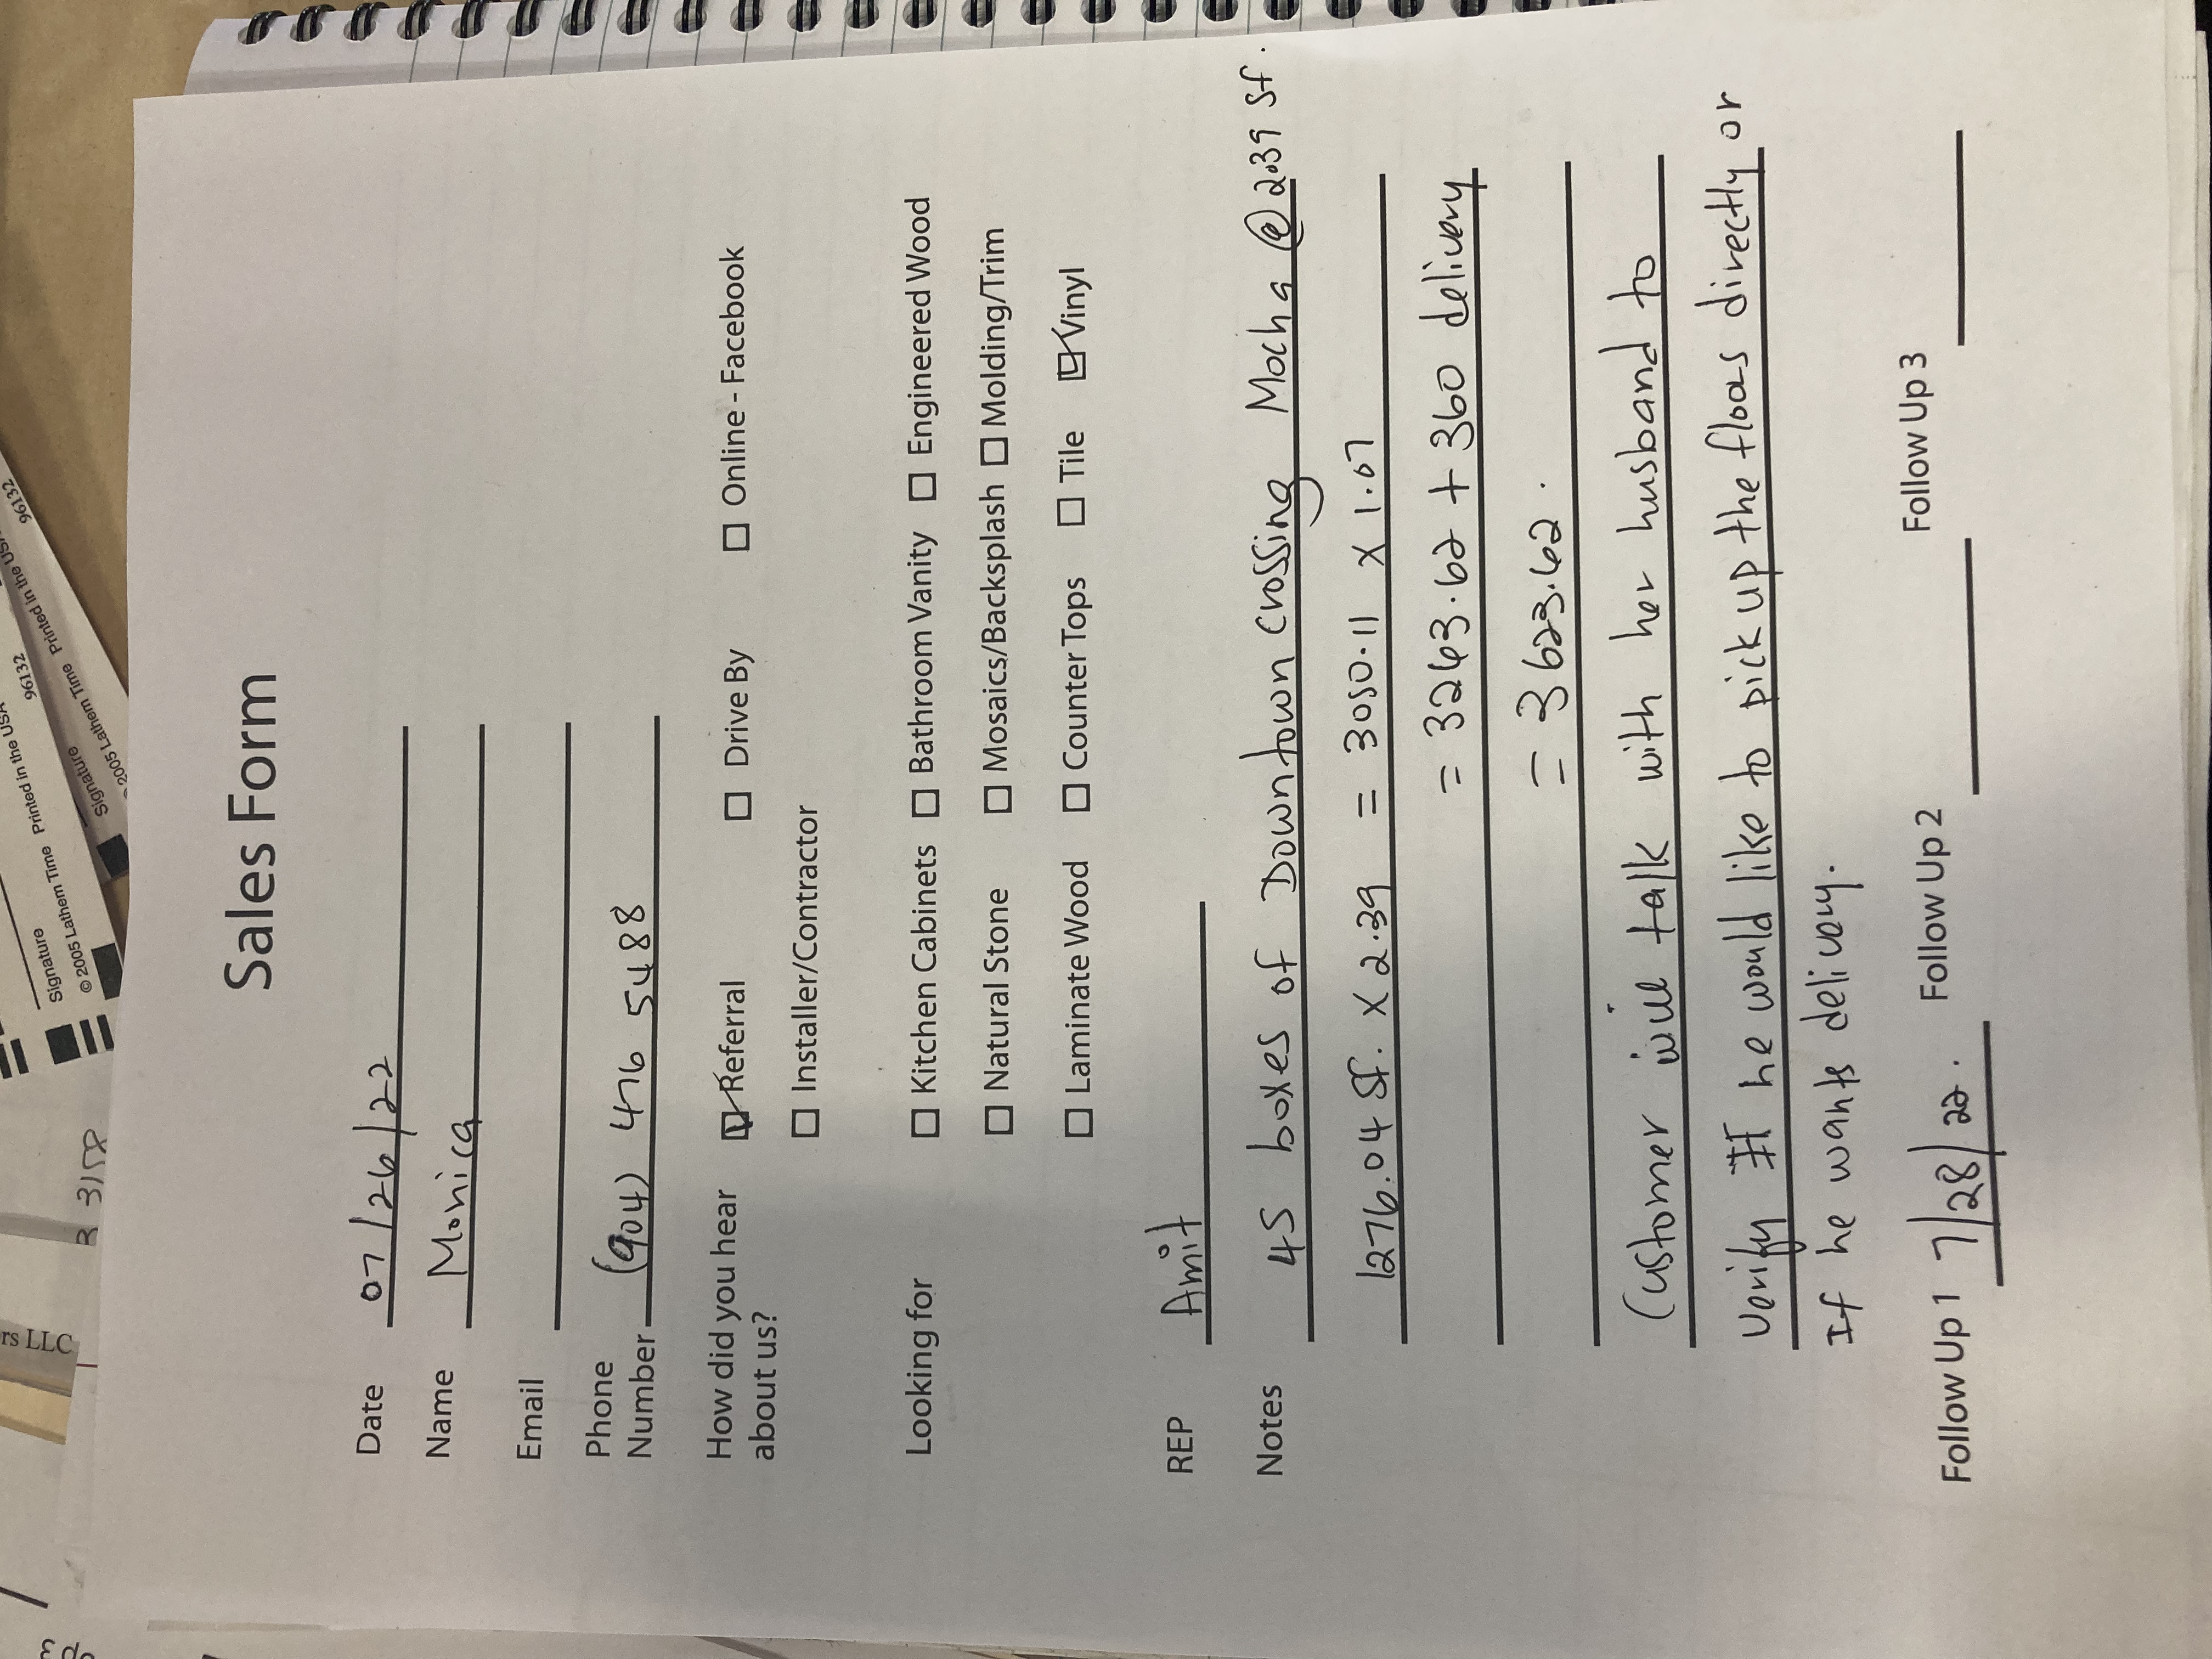 Sales Form
Date 07/26/22
Name Monica
Email
Phone
Number (904) 476 5488
How did you hear
about us?
Referral Drive By Online - Facebook
Installer/Contractor
Looking for
Kitchen Cabinets Bathroom Vanity Engineered Wood
Natural Stone Mosaics/Backsplash Molding/Trim
Laminate Wood Counter Tops Tile Vinyl
REP Amit
Notes 45 boxes of Downtown Crossing Mocha @ 2.39 sf.
1276.04 sf. x 2.39 = 3050.11 x 1.07
= 3263.62 + 360 delivery
= 3623.62.
Customer will talk with her husband to
Verify If he would like to pick up the floors directly or
If he wants delivery.
Follow Up 1 7/28/22. Follow Up 2 Follow Up 3
Signature
© 2005 Lathem Time Printed in the USA 96132
Signature
© 2005 Lathem Time Printed in the USA 96132
rs LLC